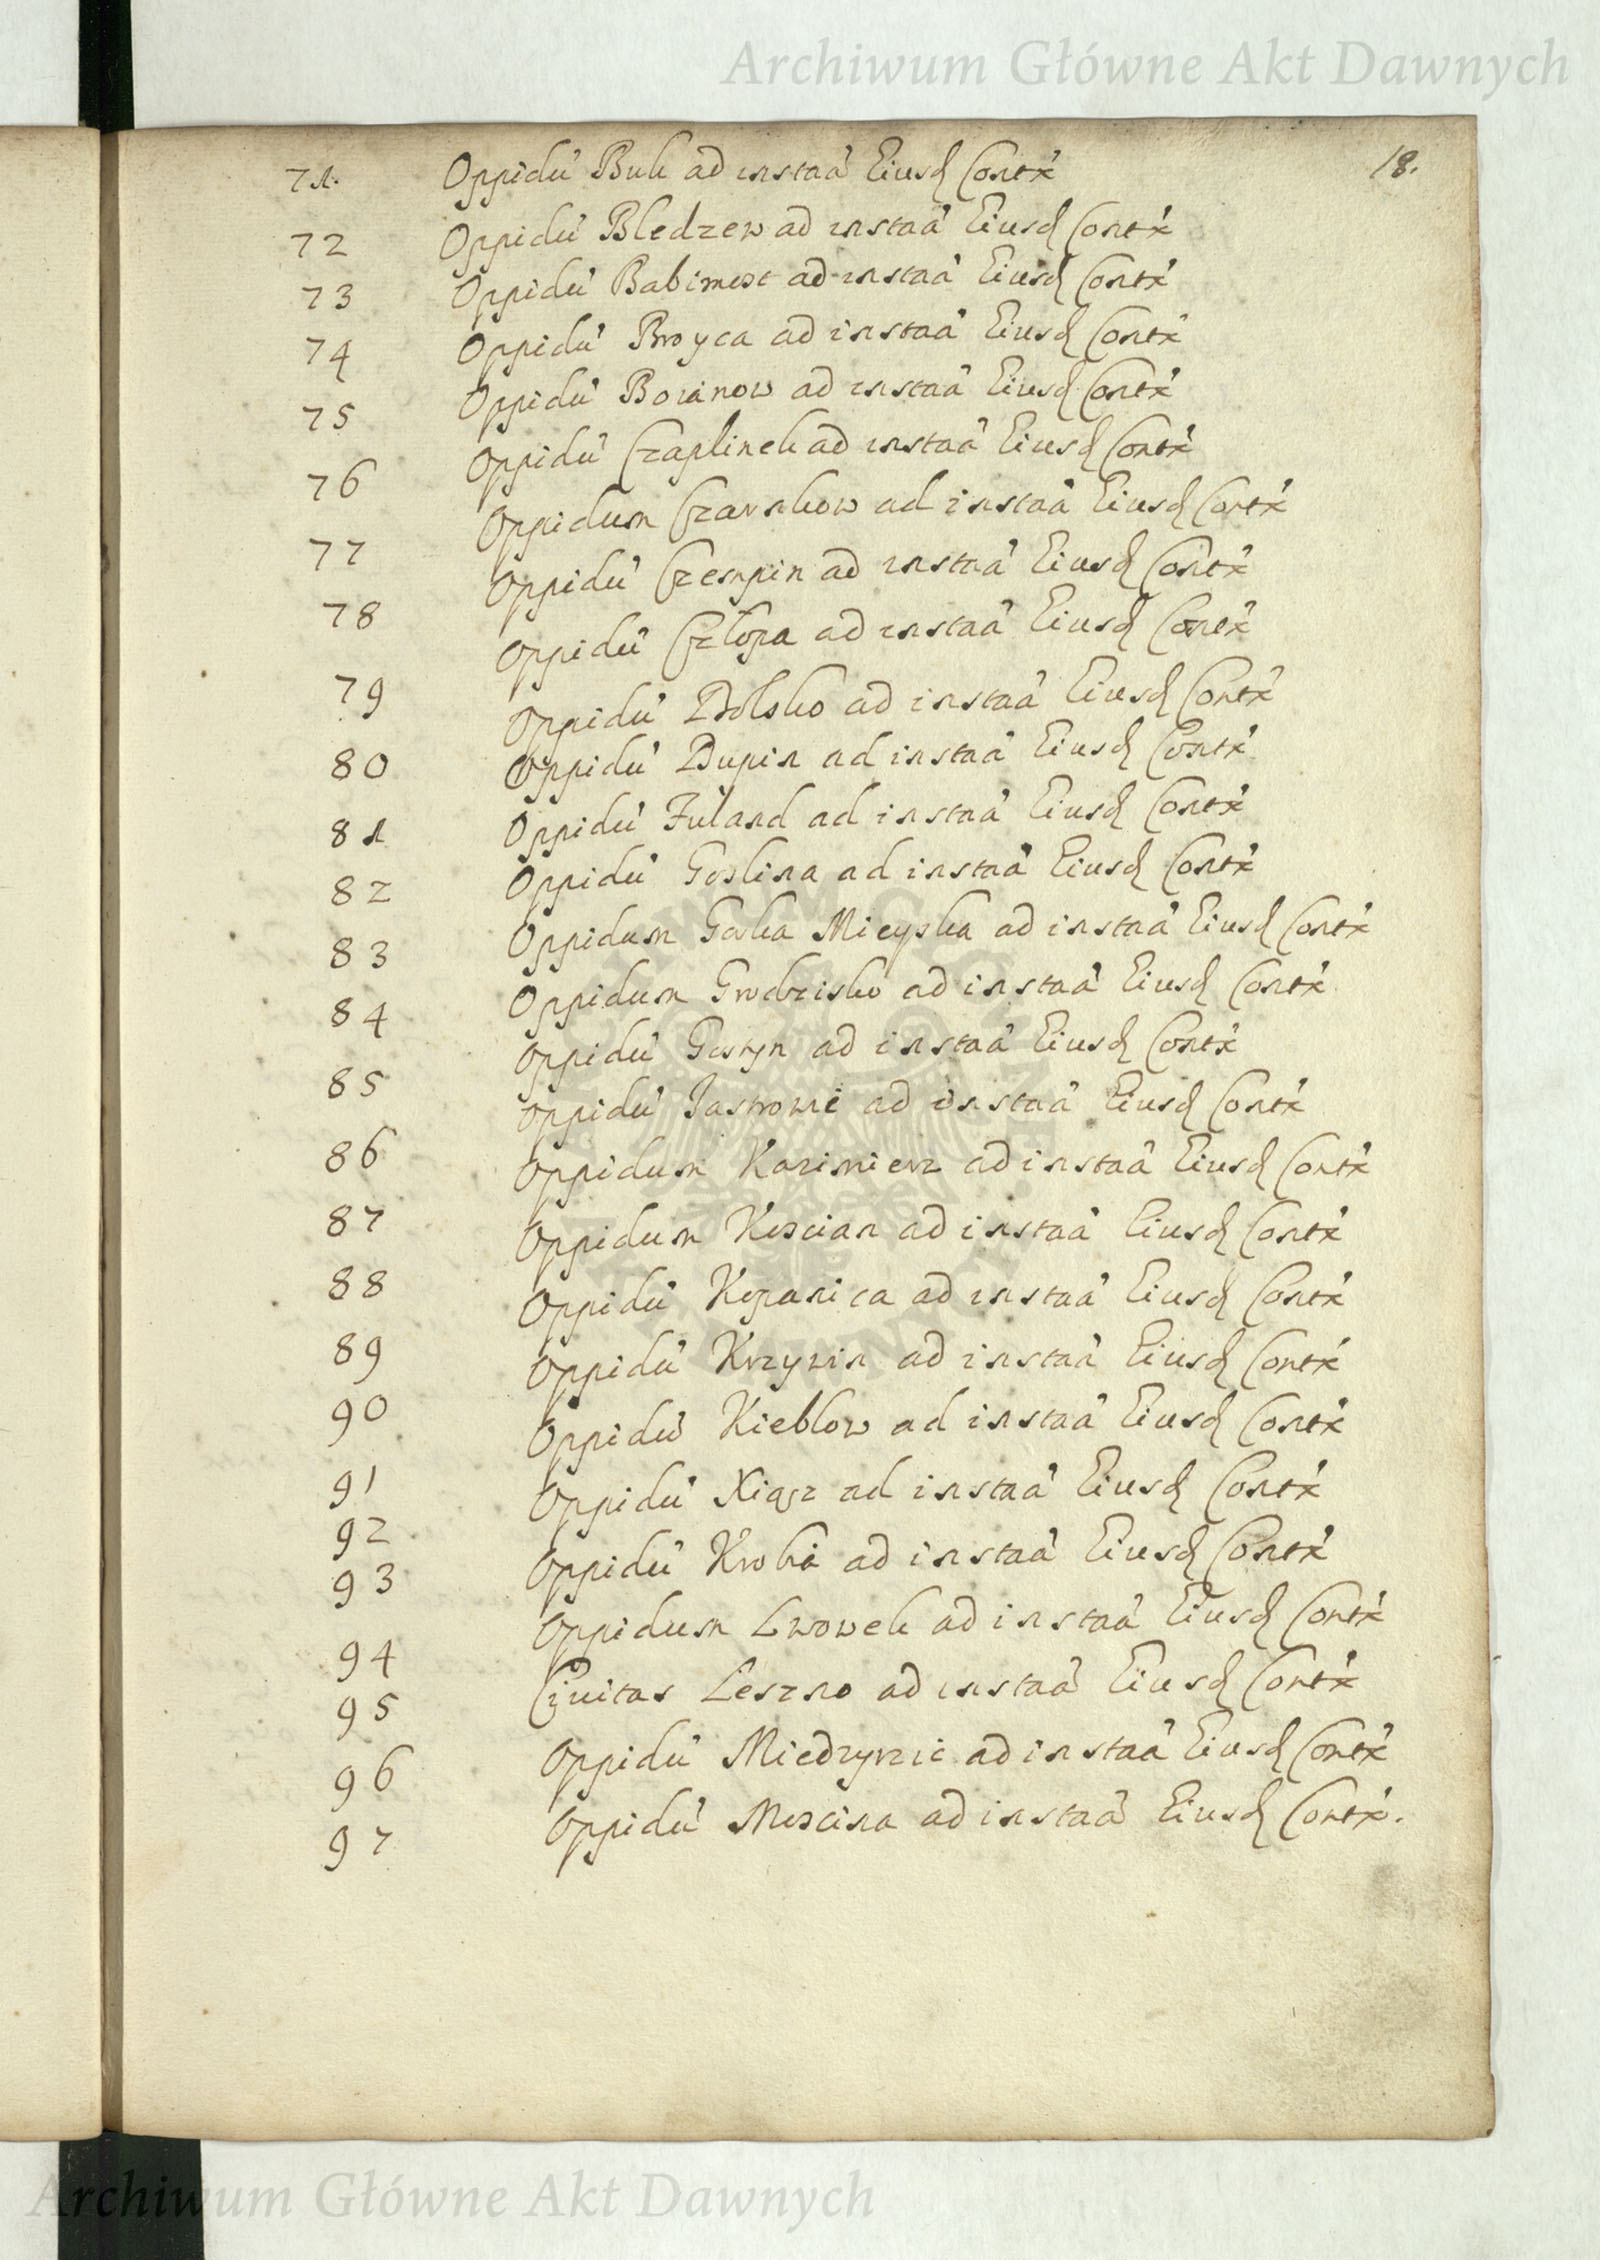 Archiwum Główne Akt Dawnych
18.
71. Oppidu' Buk ad instaã Eiusd Contx
72 Oppidu' Bledzew ad instaã Eiusd Contx
73 Oppidu' Babimost ad instaã Eiusd Contx
74 Oppidu' Broyca ad instaã Eiusd Contx
75 Oppidu' Boianow ad instaã Eiusd Contx
76 Oppidu' Czaplinek ad instaã Eiusd Contx
77 Oppidum Czarnkow ad instaã Eiusd Contx
78 Oppidu' Czempin ad instaã Eiusd Contx
79 Oppidu' Człopa ad instaã Eiusd Contx
80 Oppidu' Dolsko ad instaã Eiusd Contx
81 Oppidu' Dupin ad instaã Eiusd Contx
82 Oppidu' Fuland ad instaã Eiusd Contx
83 Oppidu' Goslina ad instaã Eiusd Contx
84 Oppidum Gorka Mieyska ad instaã Eiusd Contx
85 Oppidum Grodzisko ad instaã Eiusd Contx
86 Oppidu' Gostyn ad instaã Eiusd Contx
87 Oppidu' Jastrowie ad instaã Eiusd Contx
88 Oppidum Kazimierz ad instaã Eiusd Contx
89 Oppidum Koscian ad instaã Eiusd Contx
90 Oppidu' Kopanica ad instaã Eiusd Contx
91 Oppidu' Krzywin ad instaã Eiusd Contx
92 Oppidu' Kieblow ad instaã Eiusd Contx
93 Oppidu' Xiąsz ad instaã Eiusd Contx
94 Oppidu' Krobia ad instaã Eiusd Contx
95 Oppidum Lwowek ad instaã Eiusd Contx
96 Civitas Leszno ad instaã Eiusd Contx
97 Oppidu' Miedzyrzic ad instaã Eiusd Contx
Oppidu' Moscina ad instaã Eiusd Contx.
Archiwum Główne Akt Dawnych